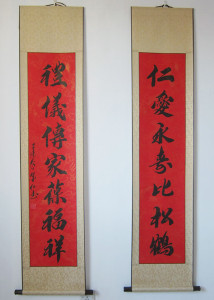 仁愛永壽比松鶴
禮儀傳家葆福祥